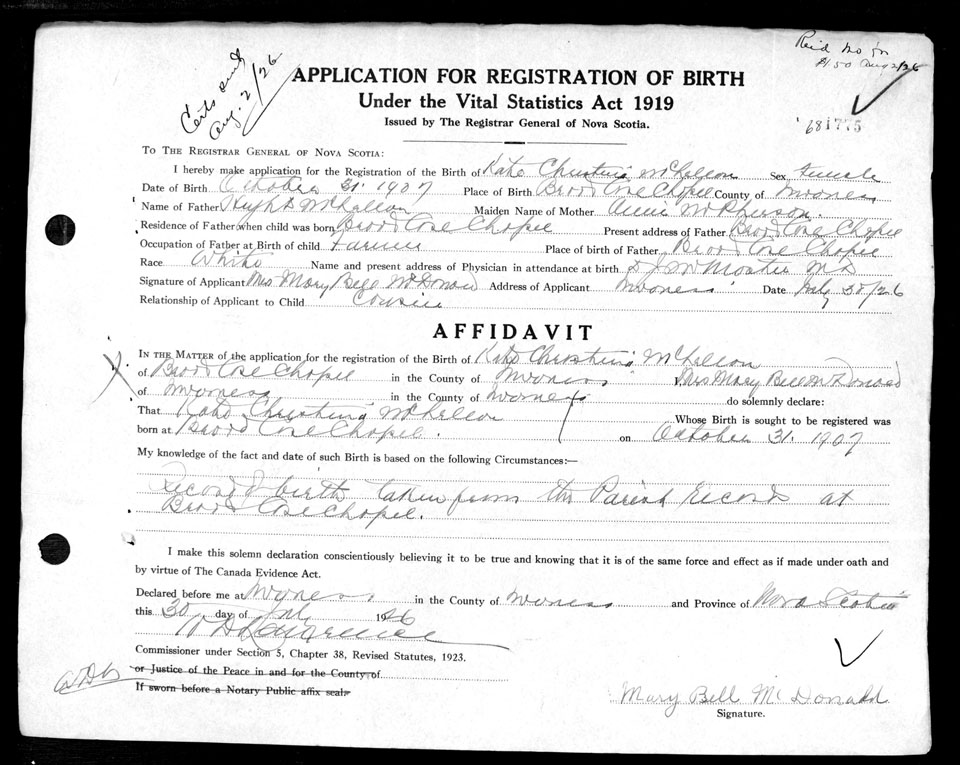 Certs sent
Aug. 2/26
Reid No for
$1.50 Aug 2/26
681775
APPLICATION FOR REGISTRATION OF BIRTH
Under the Vital Statistics Act 1919
Issued by The Registrar General of Nova Scotia.
TO THE REGISTRAR GENERAL OF NOVA SCOTIA:
I hereby make application for the Registration of the Birth of Kate Christina McLellan Sex female
Date of Birth October 31. 1907 Place of Birth Broad Cove Chapel County of Inverness
Name of Father Hugh D McLellan Maiden Name of Mother Annie
Residence of Father when child was born Broad Cove Chapel Present address of Father Broad Cove Chapel
Occupation of Father at Birth of child Farmer Place of birth of Father Broad Cove Chapel
Race White Name and present address of Physician in attendance at birth MD
Signature of Applicant Mrs Mary Bell McDonald Address of Applicant Inverness Date July 30/26
Relationship of Applicant to Child Cousin
AFFIDAVIT
IN THE MATTER of the application for the registration of the Birth of Kate Christina McLellan
of Broad Cove Chapel in the County of Inverness I, Mrs Mary Bell McDonald
of Inverness in the County of Inverness do solemnly declare:
That Kate Christina McLellan Whose Birth is sought to be registered was
born at Broad Cove Chapel. on October 31. 1907
My knowledge of the fact and date of such Birth is based on the following Circumstances:—
Record of birth taken from the Parish Records at
Broad Cove Chapel.
I make this solemn declaration conscientiously believing it to be true and knowing that it is of the same force and effect as if made under oath and
by virtue of The Canada Evidence Act.
Declared before me at Inverness in the County of Inverness and Province of Nova Scotia
this 30 day of July 1926
Commissioner under Section 5, Chapter 38, Revised Statutes, 1923.
or Justice of the Peace in and for the County of
If sworn before a Notary Public affix seal.
Mary Bell McDonald
Signature.